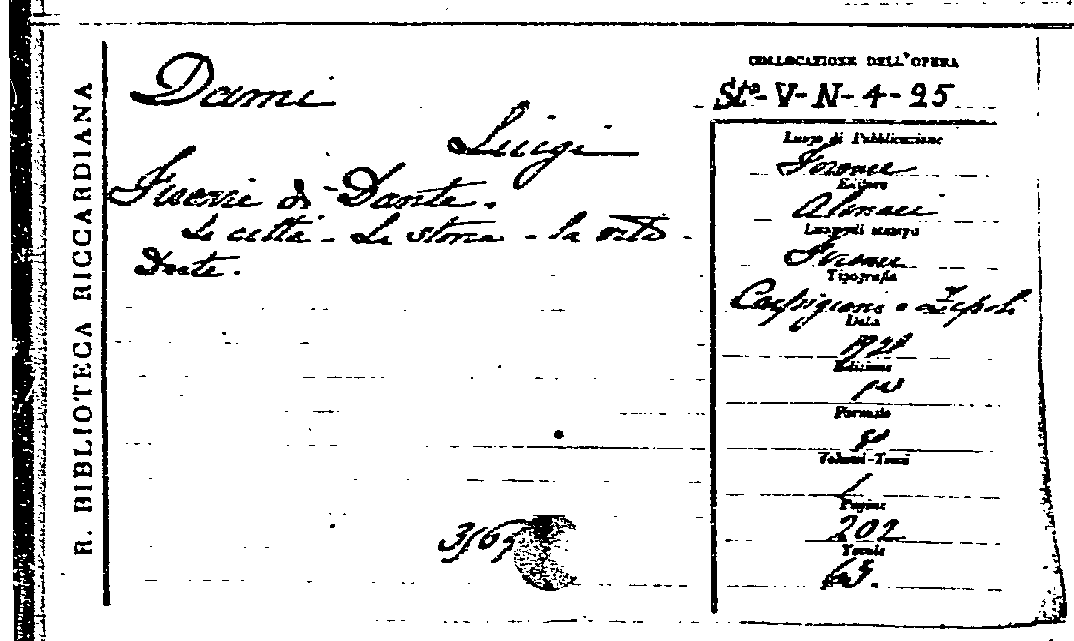 R. BIBLIOTECA RICCARDIANA
Dami
Luigi
Firenze di Dante.
La città - La storia - la vita -
Dante.
COLLOCAZIONE DELL'OPERA
Stº-V-N-4-25
Luogo di Pubblicazione
Firenze
Editore
Alinari
Luogo di stampa
Firenze
Tipografia
Carpigiani e Zipoli
Data
1921
Edizione
1ª
Formato
8º
Volumi-Tomi
1
Pagine
202
Tavole
63.